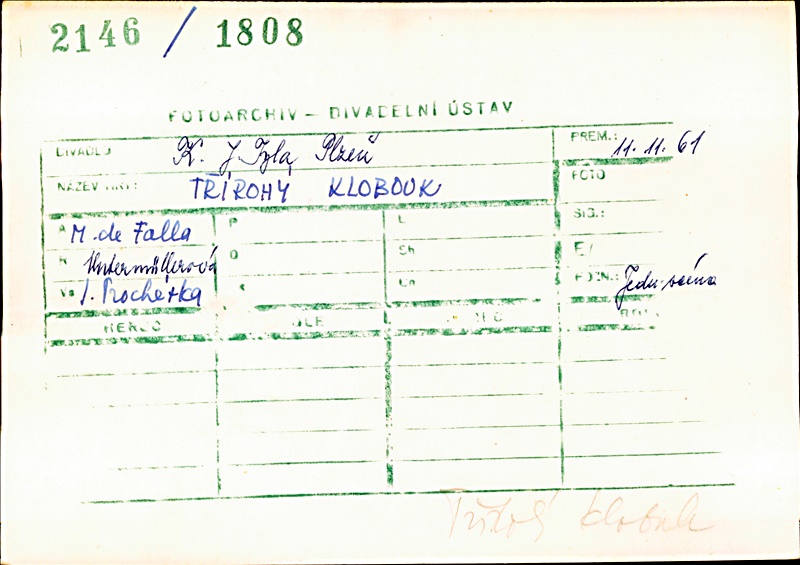 2146 / 1808
FOTOARCHIV – DIVADELNÍ ÚSTAV
DIVADLO K. J. Tyla, Plzeň PREM.: 11. 11. 61
NÁZEV HRY: TŘÍROHÝ KLOBOUK FOTO
A M. de Falla P L SIG.:
R Untermüllerová O Sh E/
Vs J. Procházka Ln POZN.:
HEREC
Třírohý klobouk